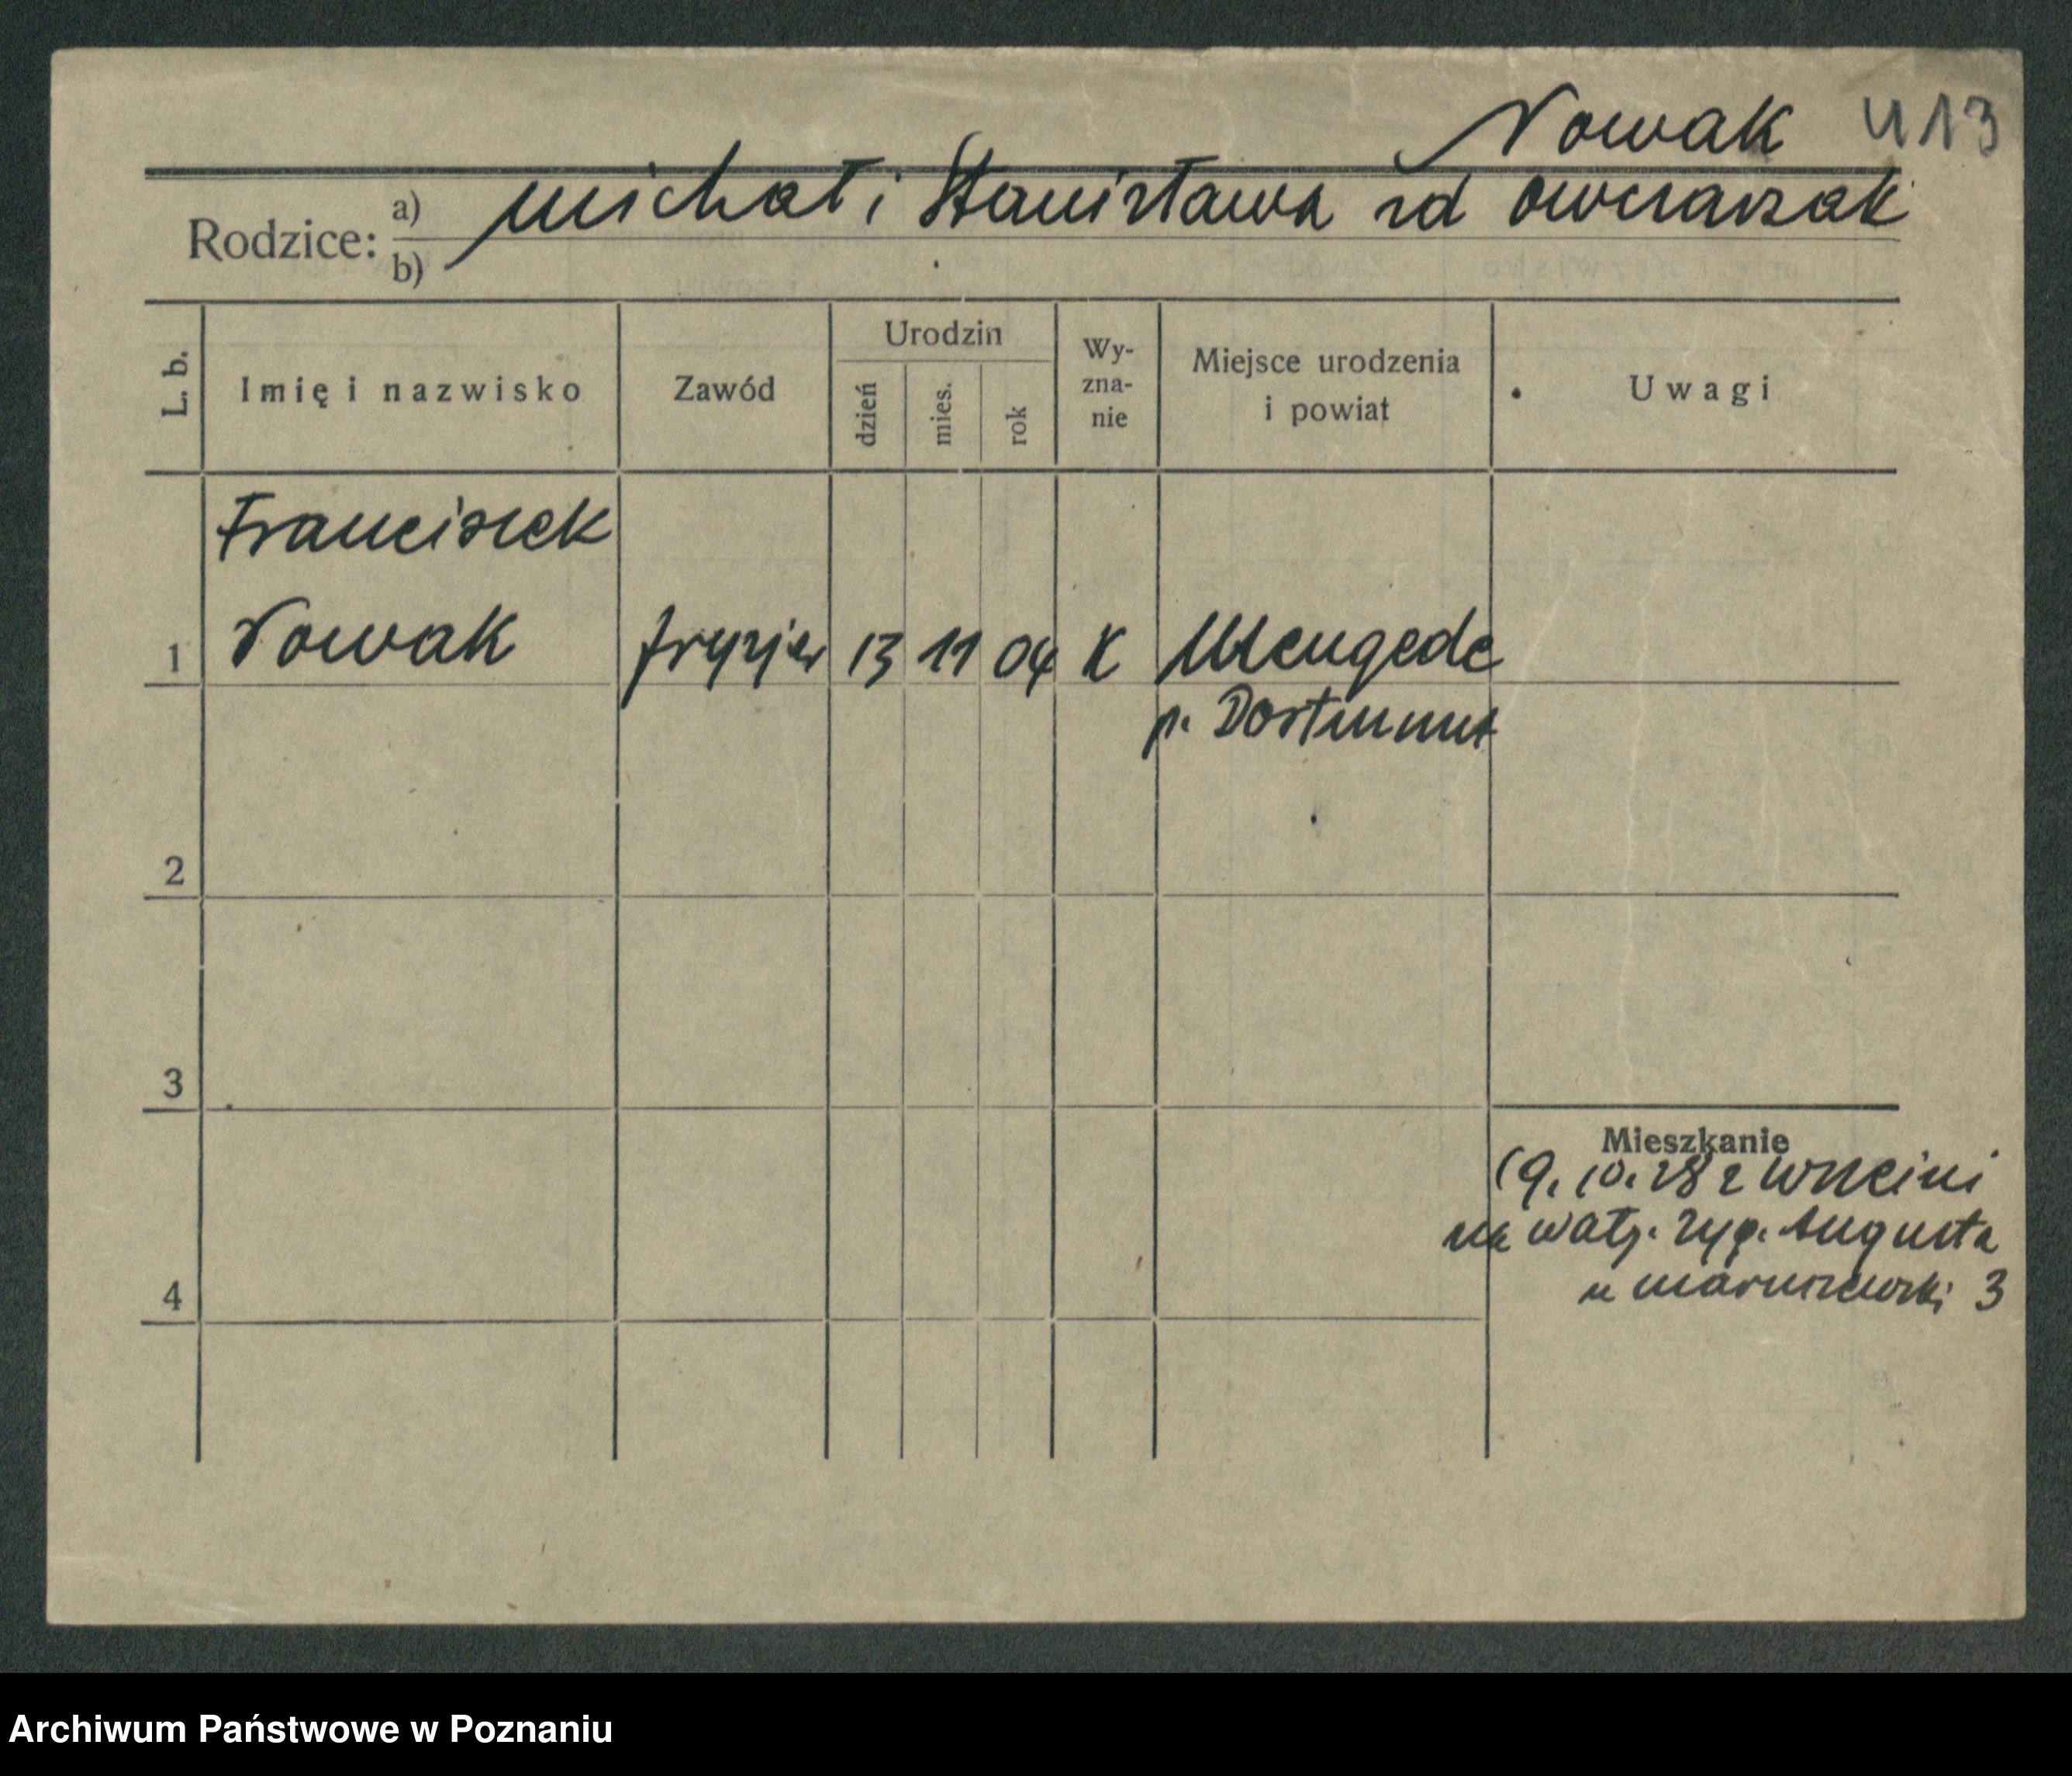 Nowak 413
Rodzice: a) Michał i Stanisława zd Owczarzak
b)
L. b.
Imię i nazwisko
Zawód
Urodzin
dzień
mies.
rok
Wy-
zna-
nie
Miejsce urodzenia
i powiat
Uwagi
Franciszek
1 Nowak fryzjer 13 11 04 K Mengede
p. Dortmunt
2
3
Mieszkanie
9. 10. 28 z
na Zyg. Augusta
u 3
4
Archiwum Państwowe w Poznaniu